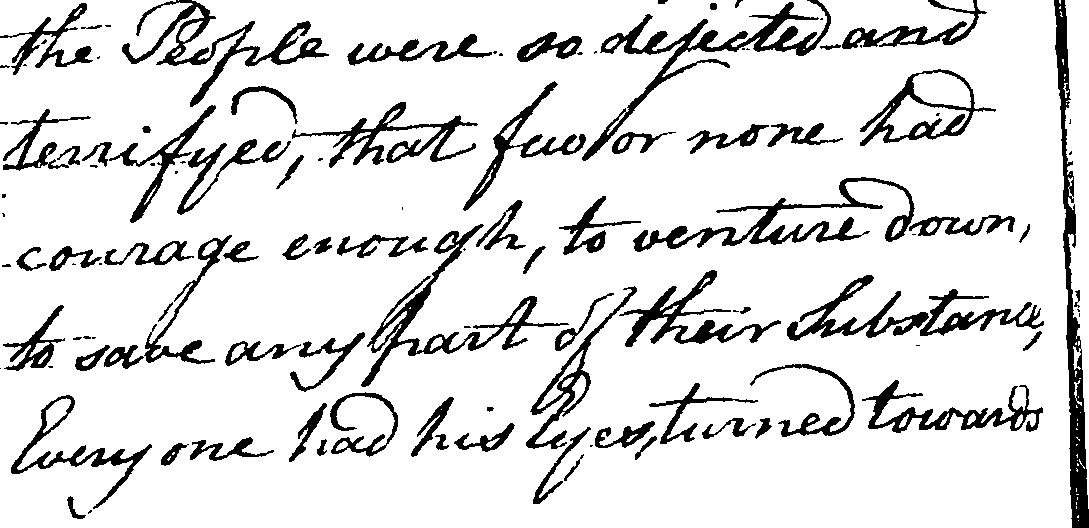 the People were so dejected and
terrifyed, that few or none had
courage enough, to venture down,
to save any part of their Substance,
Every one had his Eyes, turned towards